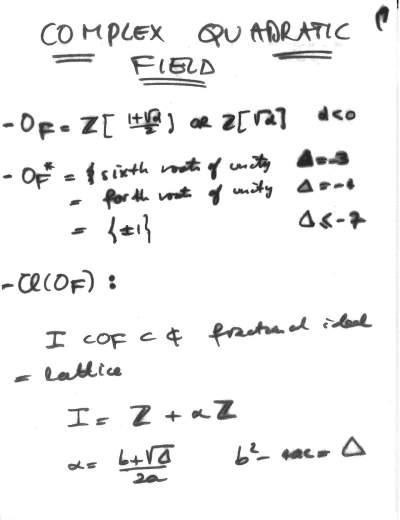 COMPLEX QUADRATIC
FIELD
- O_F = Z[(1+√d)/2] OR Z[√d] d<0
- O_F^* = {sixth roots of unity Δ=-3
= forth root of unity Δ=-4
= {±1} Δ≤-7
- Cl(O_F) :
I ⊂ O_F ⊂ ₵ fractional ideal
= lattice
I = Z + αZ
α = (b+√Δ)/2a b²-4ac = Δ